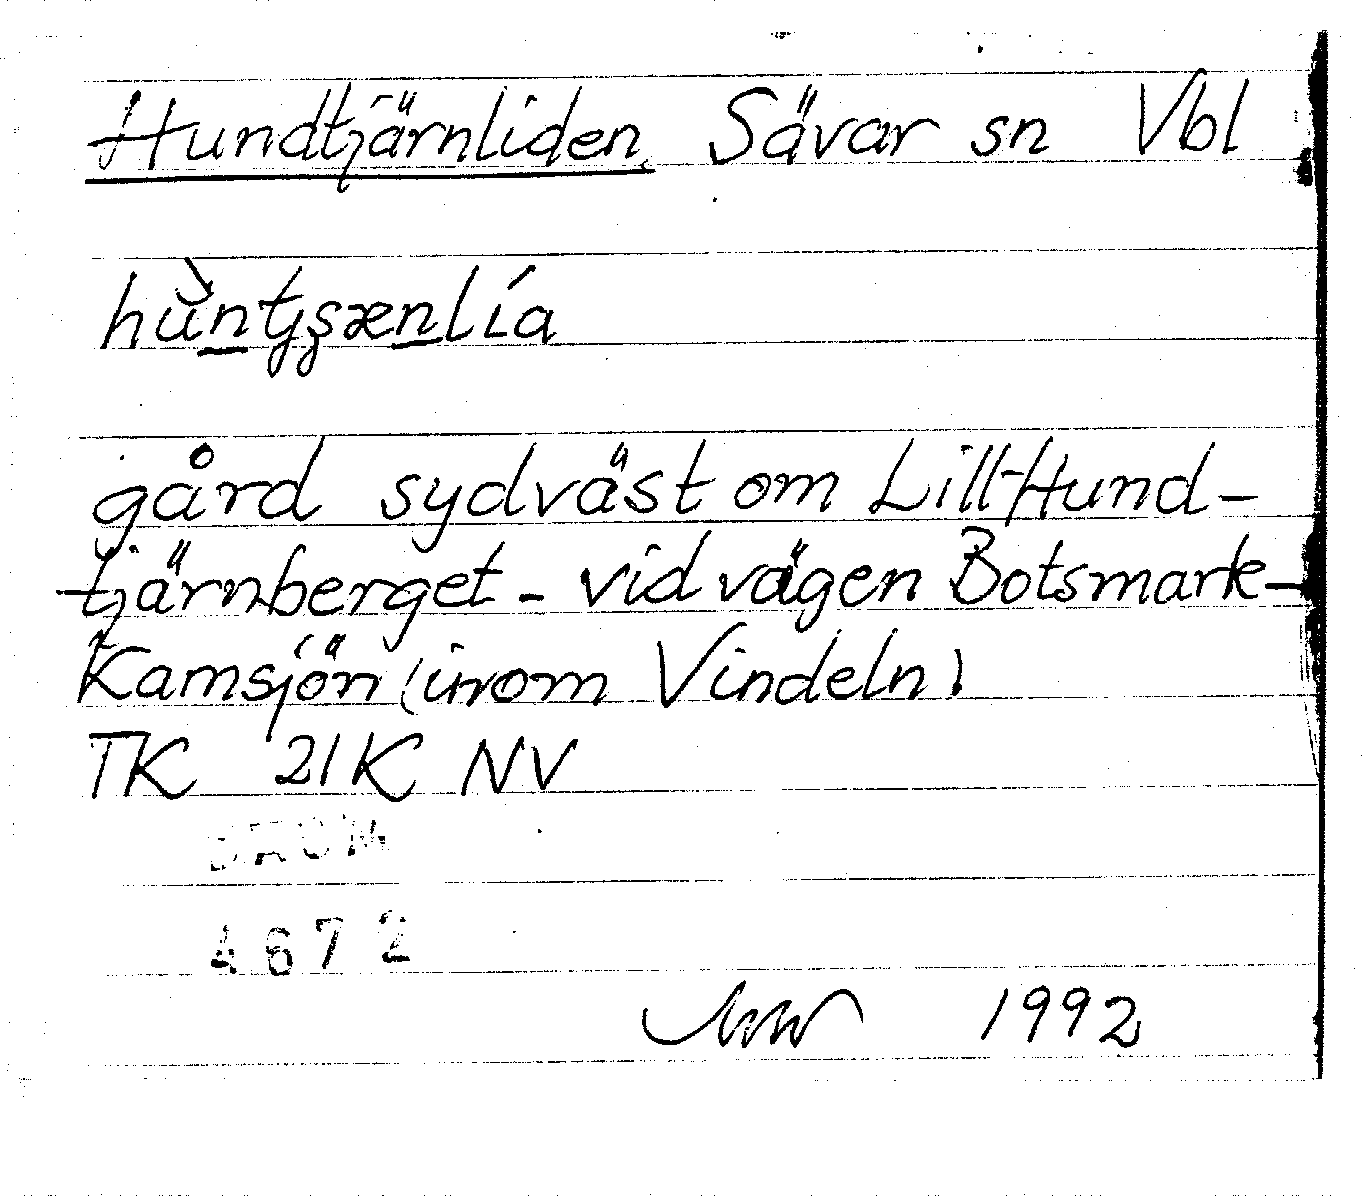 Hundtjärnliden Sävar sn Vbl
gård sydväst om Lill-Hund-
tjärnberget - vid vägen Botsmark-
Kamsjön (inom Vindeln)
TK 21K NV
DAUM
4672
1992